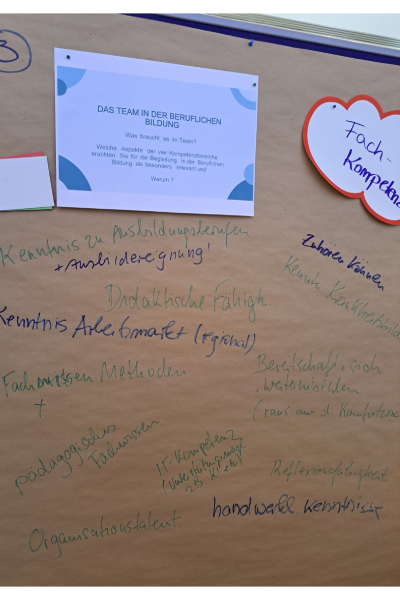 3
DAS TEAM IN DER BERUFLICHEN
BILDUNG
Was braucht es im Team?
Welche Aspekte der vier Kompetenzbereiche
erachten Sie für die Begleitung in der Beruflichen
Bildung als besonders relevant und
Warum?
Fach-
Kompetenz
Kenntnis zu Ausbildungsberufen
+ Ausbildereignung!
Zuhören können
Didaktische Fähigk.
Kenntnis Arbeitsmarkt (regional)
Fachwissen Methoden
+
pädagogisches
Fachwissen
Bereitschaft, sich
weiterbilden
IT-Kompetenz
Reflexionsfähigkeit
handwerkl. Kenntnisse
Organisationstalent